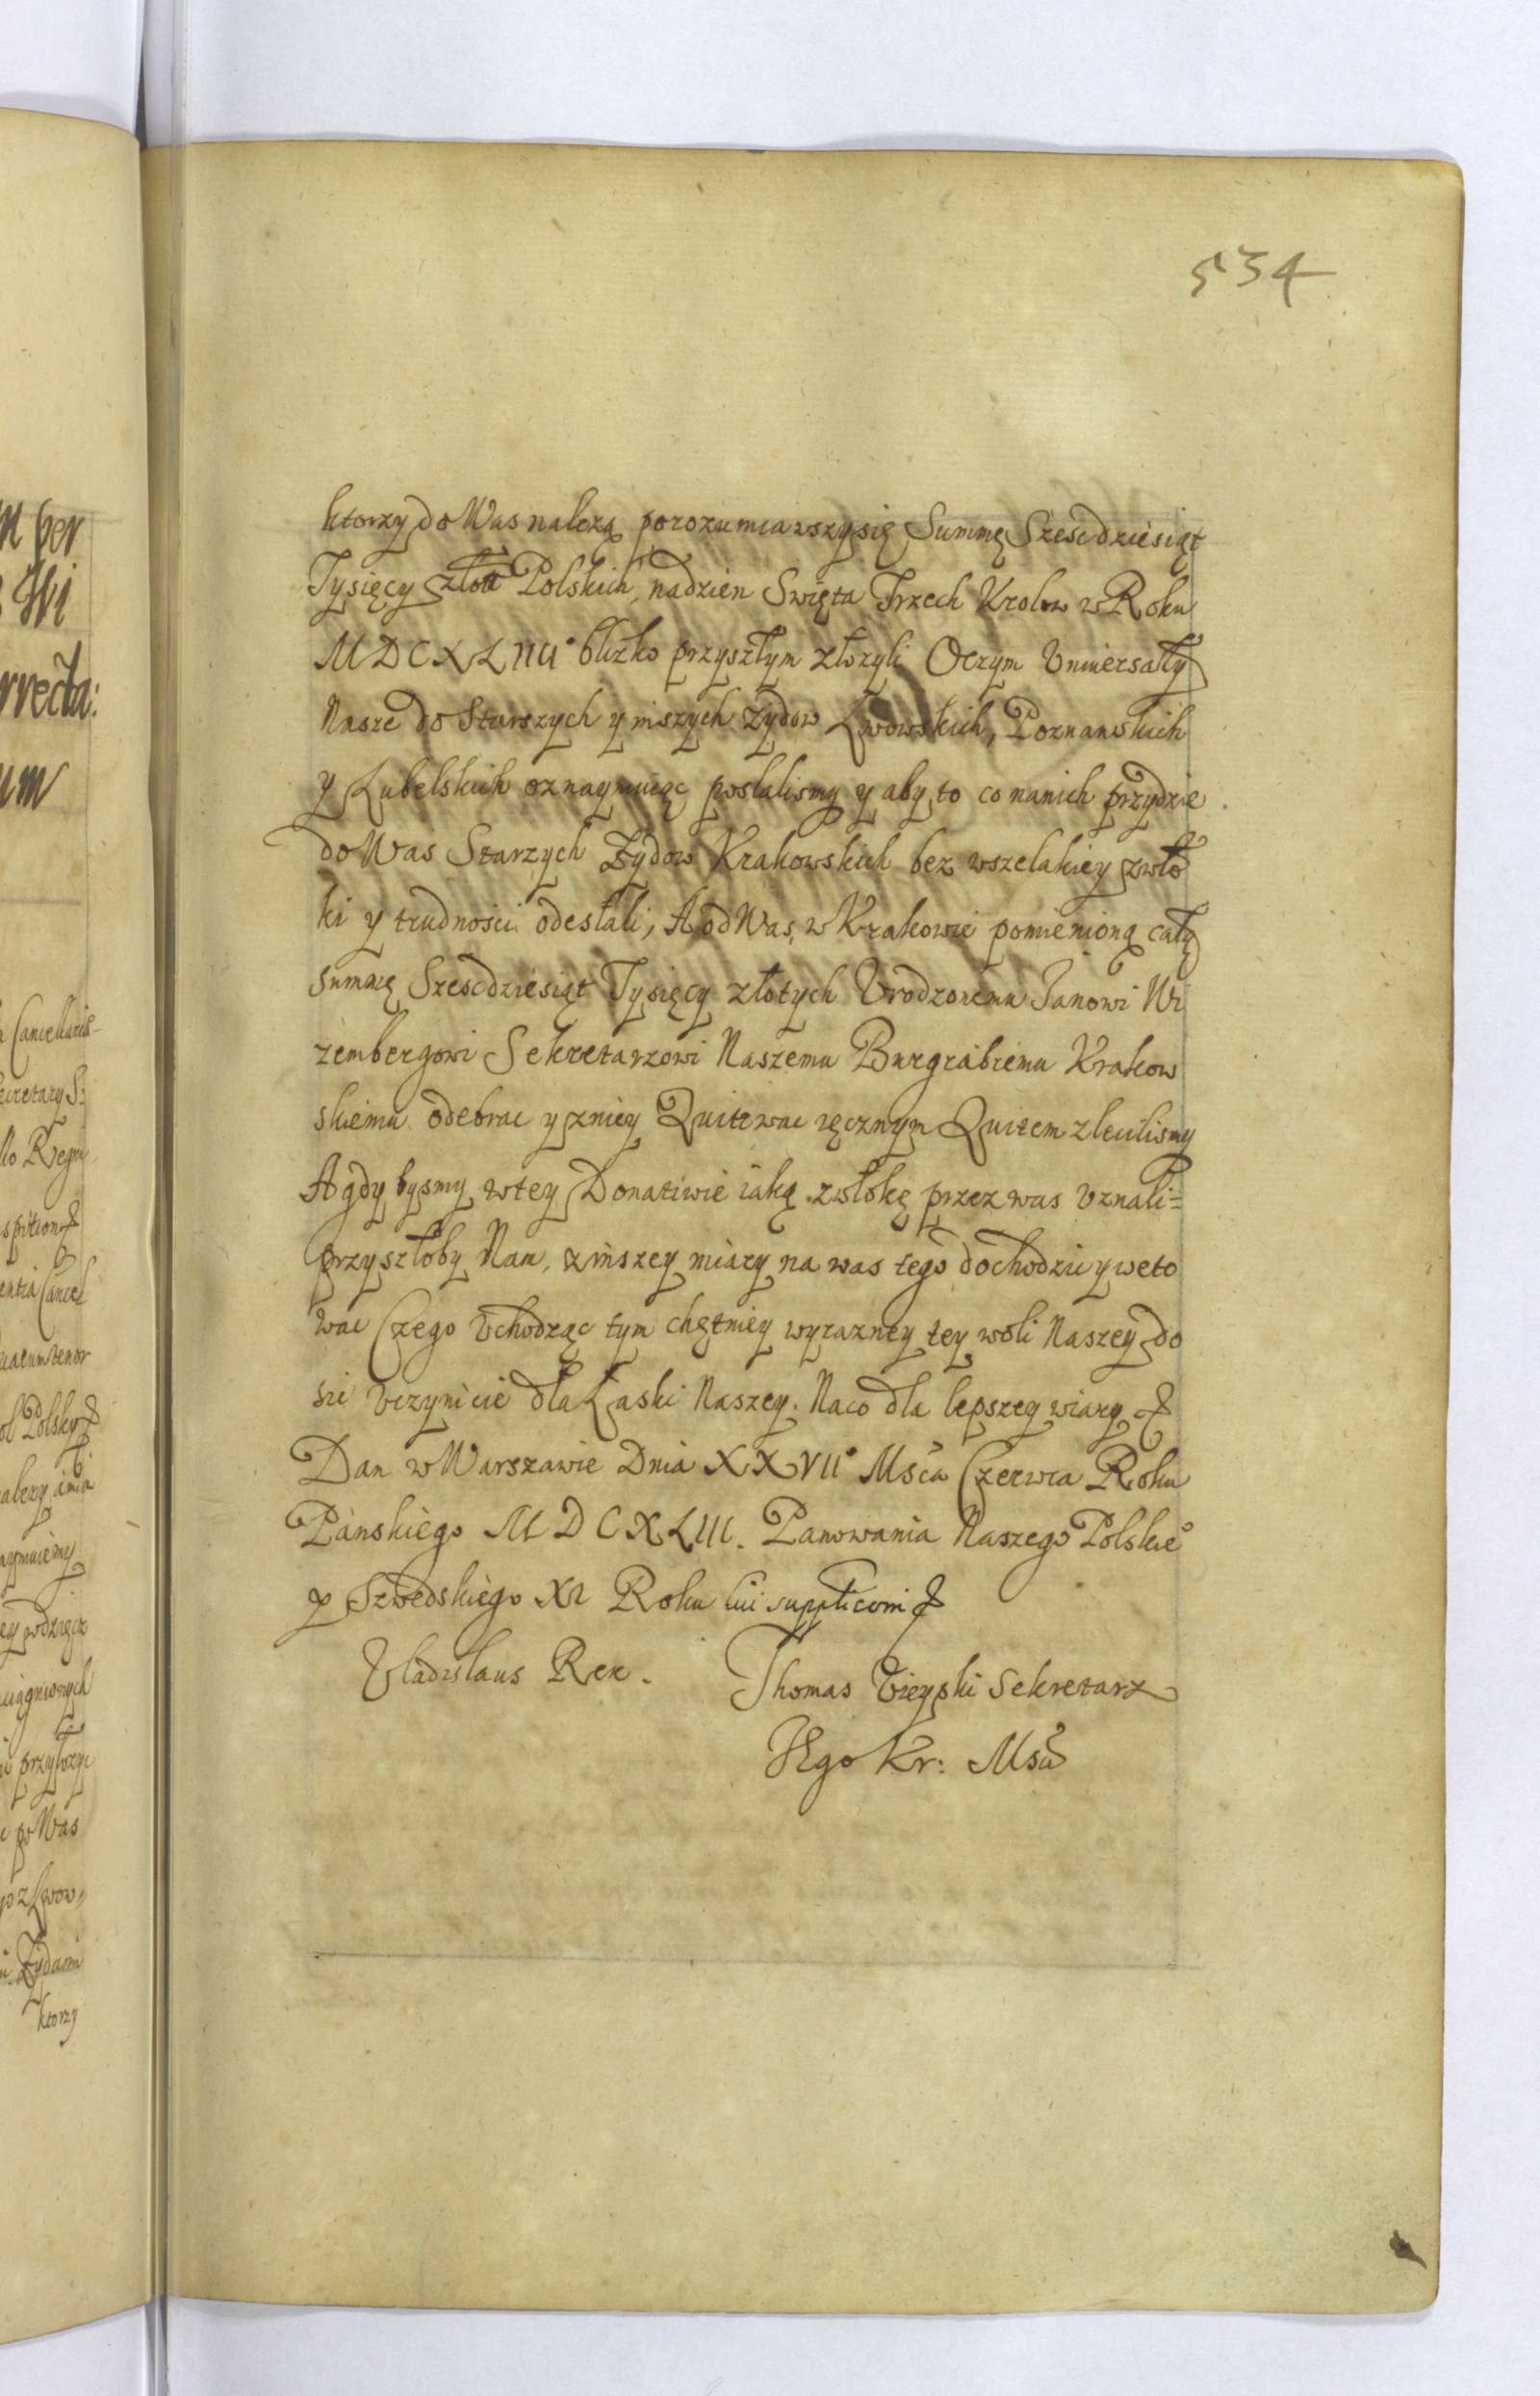 534
ktorzy do Was naleza porozumiawszy się Summę Szescdziesiąt
Tysięcy złott Polskich, na dzien Swięta Trzech Krolow w Roku
MDCXLIIII° blizko przyszłym złozyli Oczym Vniwersały
Nasze do Starszych y inszych Zydow Lwowskich, Poznanskich
y Lubelskich oznaymuiąc posłalismy y aby to co nanich przydzie
do Was Starzych Zydow Krakowskich bez wszelakiey zwło
ki y trudnosci odesłali, A od Was, w Krakowie pomienioną całą
summę Szescdziesiąt Tysięcy złotych Vrodzonemu Janowi Wi
zembergowi Sekretarzowi Naszemu Burgrabiemu Krakow
skiemu odebrac y zniey Quitowac ręcznym Quitem zlecilismy
A gdy bysmy wtey Donatiwie iaką zwłokę przez was vznali=
przyszłoby Nam, zinszey miary na was tego dochodzic y weto
wac Czego Vchodząc tym chętniey wyrazney tey woli Naszey do
sic vczynicie dla Łaski Naszey. Naco dla lepszey wiary &
Dan w Warszawie Dnia XXVII° Msca Czerwca Roku
Panskiego MDCXLIII. Panowania Naszego Polskie°
y Szwedskiego XI Roku
Vladislaus Rex. Thomas Vieyski Sekretarz
JEgo Kr: Msci
n per
Wi
rrecta:
um
Cancellaris
ecretary S:
llo Regni
spition &
entia Cancel
uatum tenor
ol Polsky &
alezy
aymuiemy
ey podzięcz
uiągnionych
przyłozyc
c po Was
yo z Lwow
Zydami
ktorzy